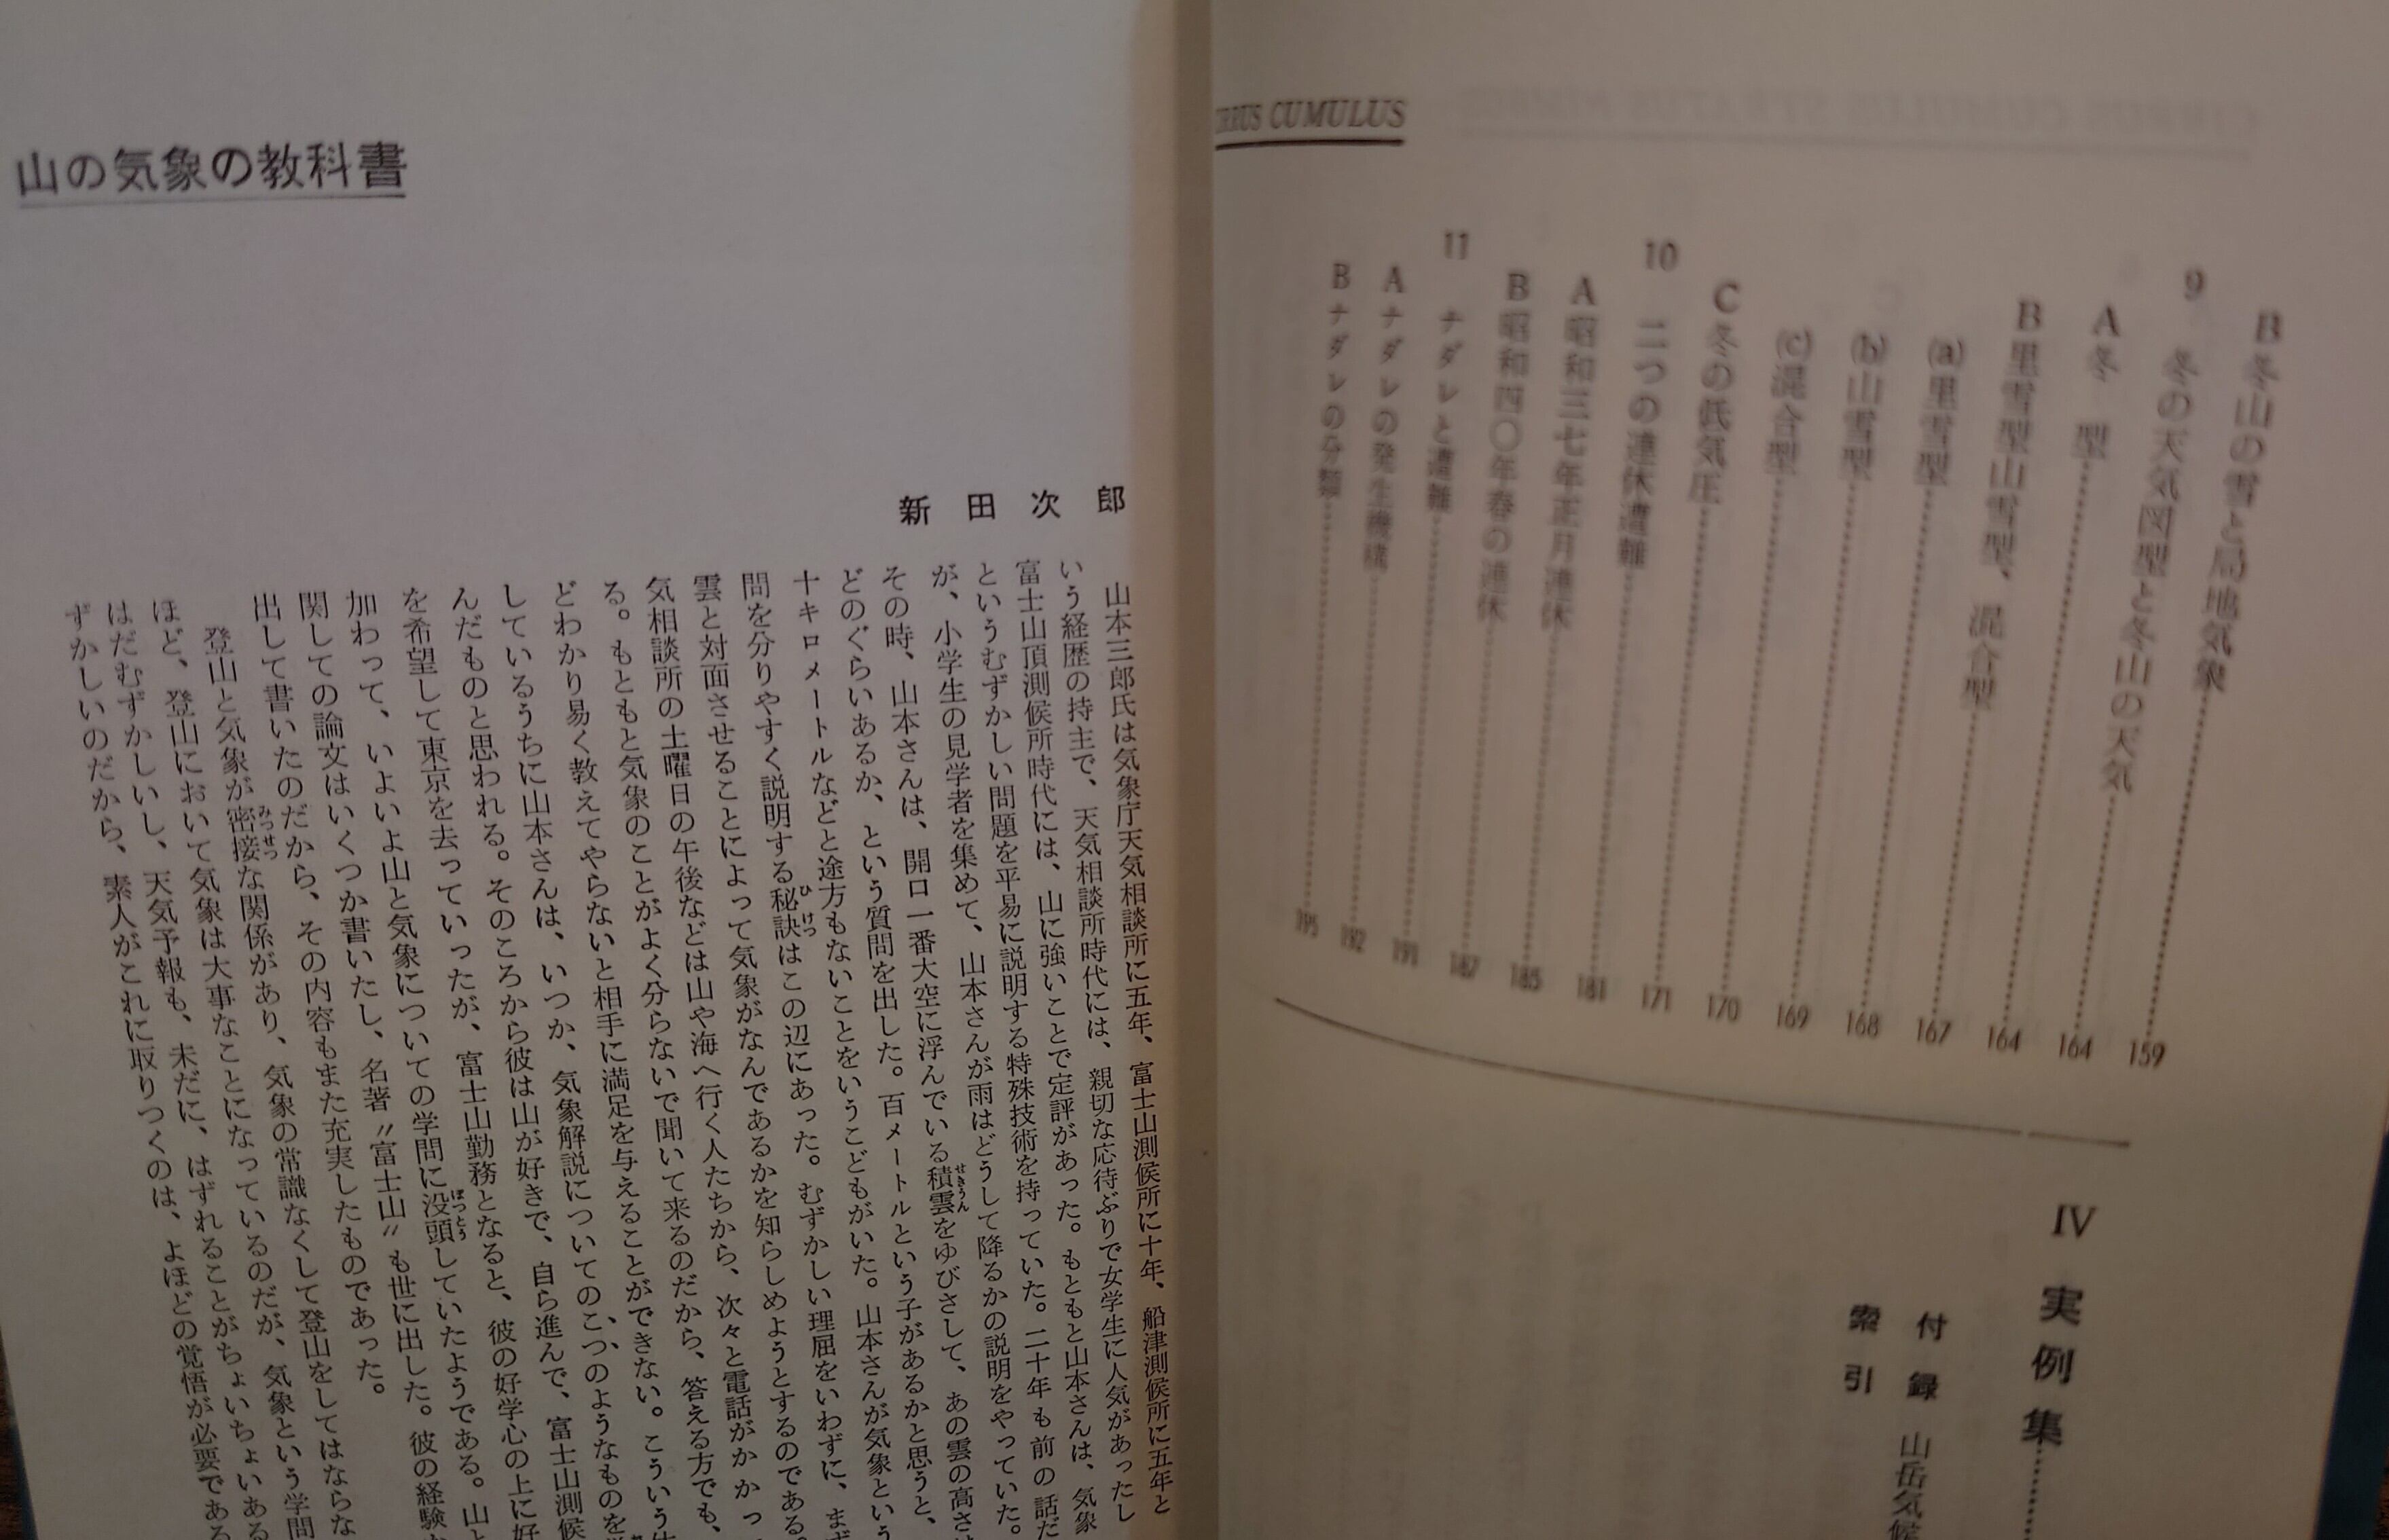 CUMULUS
B 冬山の雪と局地気象 159
9 冬の天気図型と冬山の天気 164
A 冬 型 164
B 里雪型山雪型、混合型 167
(a) 里雪型 168
(b) 山雪型 169
(c) 混合型 170
C 冬の低気圧 171
10 二つの連休遭難 181
A 昭和三七年正月連休 185
B 昭和四〇年春の連休 187
11 ナダレと遭難 191
A ナダレの発生機構 192
B ナダレの分類 195
IV 実例集
付 録 山岳気候
索 引
山の気象の教科書
新田次郎
山本三郎氏は気象庁天気相談所に五年、富士山測候所に十年、船津測候所に五年と
いう経歴の持主で、天気相談所時代には、親切な応待ぶりで女学生に人気があったし
富士山頂測候所時代には、山に強いことで定評があった。もともと山本さんは、気象
というむずかしい問題を平易に説明する特殊技術を持っていた。二十年も前の話だ
が、小学生の見学者を集めて、山本さんが雨はどうして降るかの説明をやっていた。
その時、山本さんは、開口一番大空に浮んでいる積雲をゆびさして、あの雲の高さは
どのぐらいあるか、という質問を出した。百メートルという子があるかと思うと、
十キロメートルなどと途方もないことをいうこどもがいた。山本さんが気象という
問を分りやすく説明する秘訣はこの辺にあった。むずかしい理屈をいわずに、まず
雲と対面させることによって気象がなんであるかを知らしめようとするのである。
気相談所の土曜日の午後などは山や海へ行く人たちから、次々と電話がかかっ
る。もともと気象のことがよく分らないで聞いて来るのだから、答える方でも、
どわかり易く教えてやらないと相手に満足を与えることができない。こういう
しているうちに山本さんは、いつか、気象解説についてのこつのようなものを
んだものと思われる。そのころから彼は山が好きで、自ら進んで、富士山測候
を希望して東京を去っていったが、富士山勤務となると、彼の好学心の上に好
加わって、いよいよ山と気象についての学問に没頭していたようである。山と
関しての論文はいくつか書いたし、名著〃富士山〃も世に出した。彼の経験
出して書いたのだから、その内容もまた充実したものであった。
登山と気象が密接な関係があり、気象の常識なくして登山をしてはならな
ほど、登山において気象は大事なことになっているのだが、気象という学問
はだむずかしいし、天気予報も、未だに、はずれることがちょいちょいある
ずかしいのだから、素人がこれに取りつくのは、よほどの覚悟が必要である